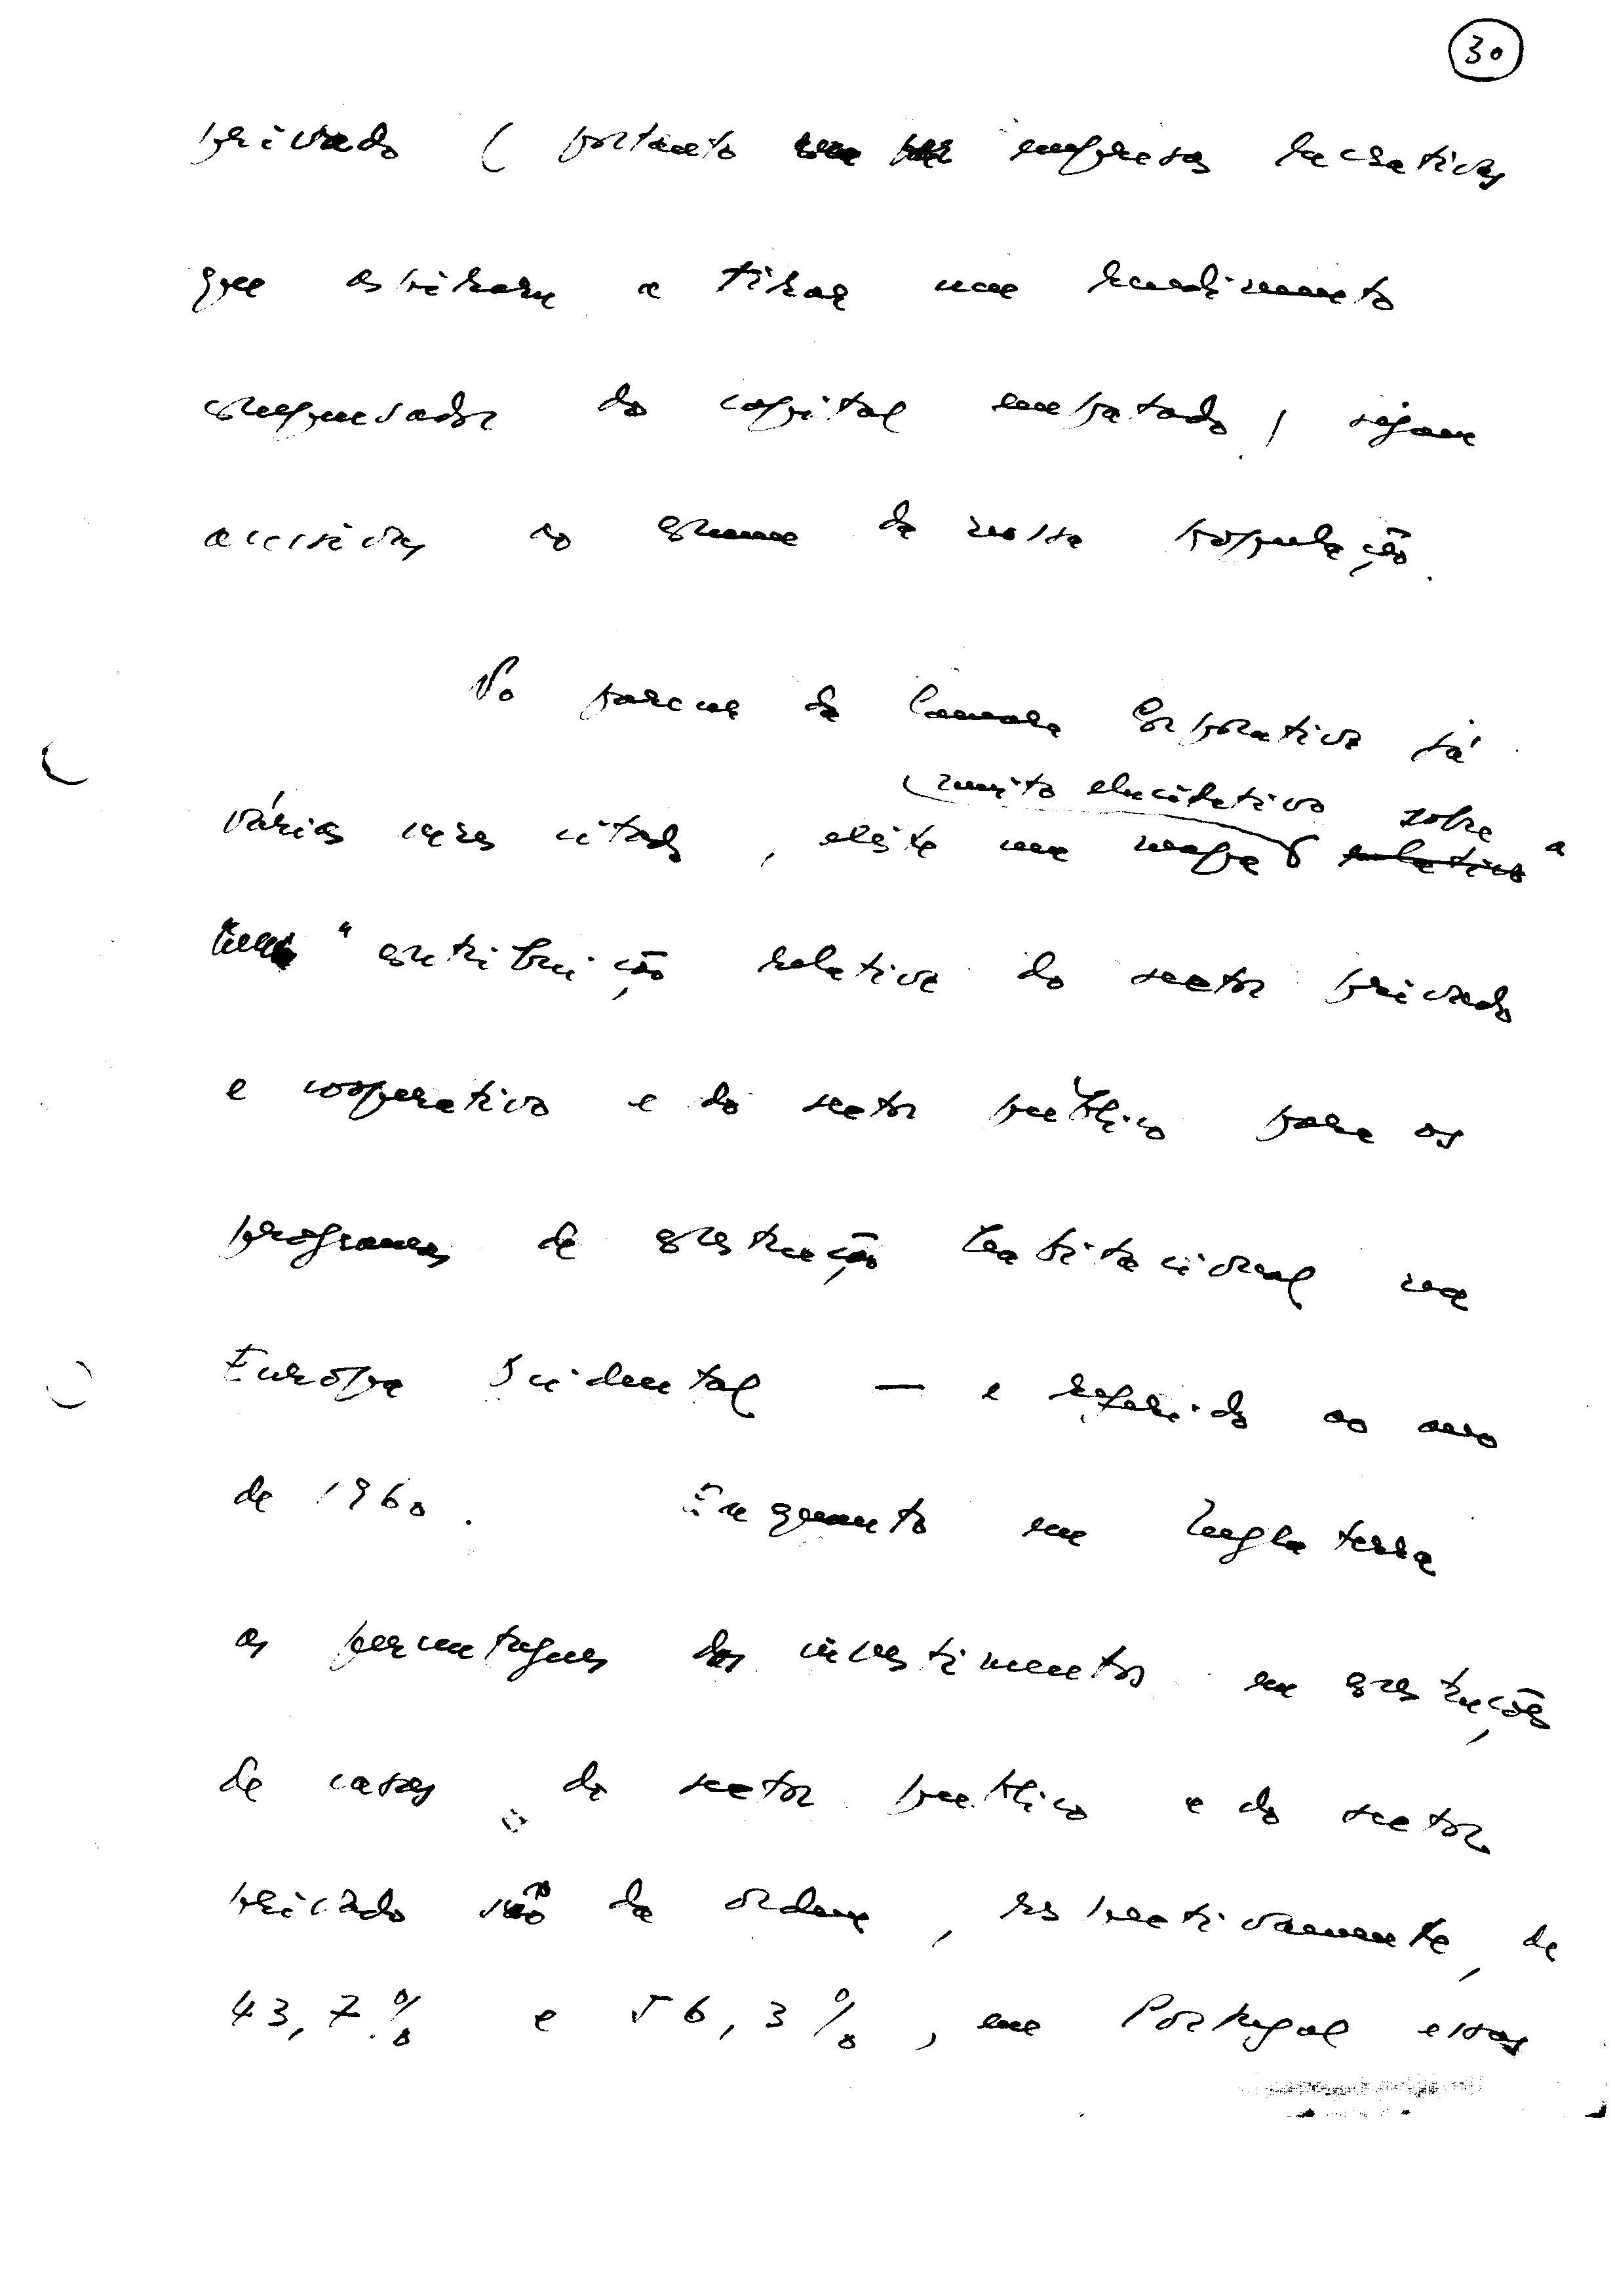 30
privado ( portanto empresas lucrativas
que aspiram a tirar um rendimento
compensador do capital empatado, sejam
acessíveis ao comum da nossa população.
No parecer da Camara Corporativa já
muito elucidativo sobre
várias vezes citado, existe um mapa relativo a
"contribuição relativa do sector privado
e cooperativo e do sector público para os
programas de construção habitacional na
Europa Ocidental — e referido ao ano
de 1960. Enquanto em Inglaterra
as percentagens dos investimentos em construções
de casas do sector público e do sector
privado são da ordem, respectivamente, de
43,7% e 56,3%, em Portugal essas